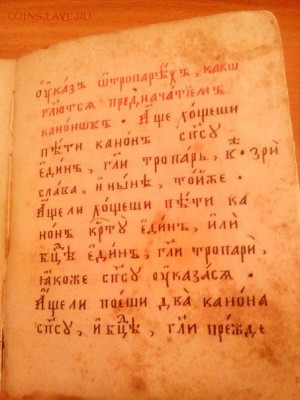 COINS.LAVE.RU
оу҆ка́зъ ѿтропарѣ́хъ, ка́кѡ
гл҃ются пред̾нача́тїемъ
кано́нѡвъ · А҆́ще хо́щеши
пѣ́ти кано́нъ сп҃су
є҆ди́нъ, гл҃и тропа́рь, в҃· зри
сла́ва, и҆ ны́нѣ, то́йже ·
А҆́щели хо́щеши пѣ́ти ка
но́нъ кр҃ту̀ є҆ди́нъ, и҆лѝ
бц҃ѣ є҆ди́нъ, гл҃и тропарѝ,
ꙗ҆́коже сп҃су оу҆каза́ся ·
А҆́щели пое́ши два̀ кано́на
сп҃су, и҆ бц҃ѣ, гл҃и пре́жде